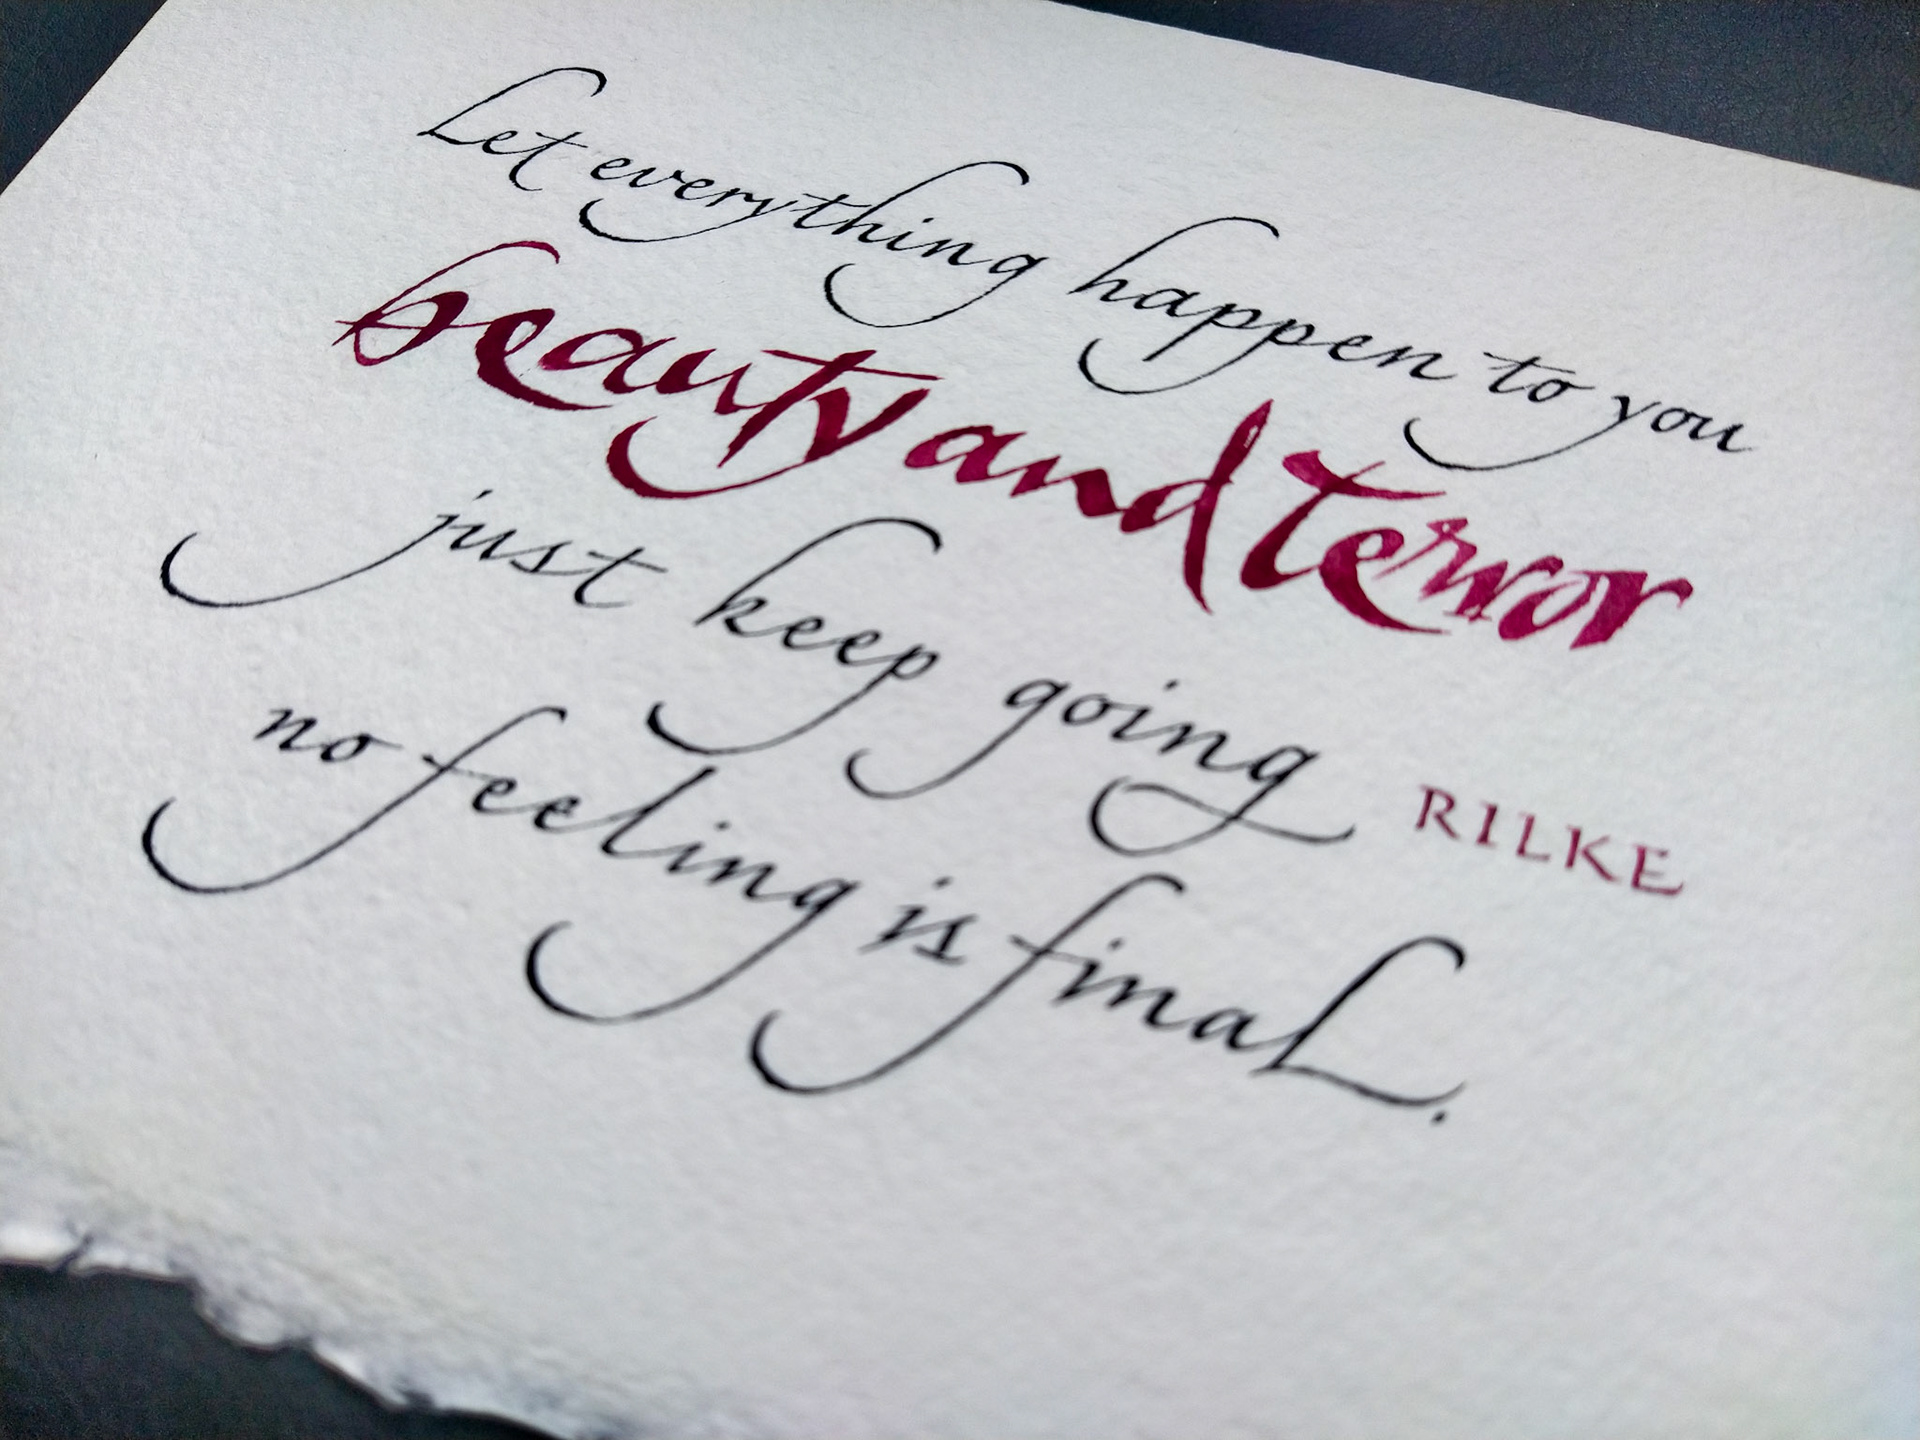 Let everything happen to you
beauty and terror
just keep going
RILKE
no feeling is final.